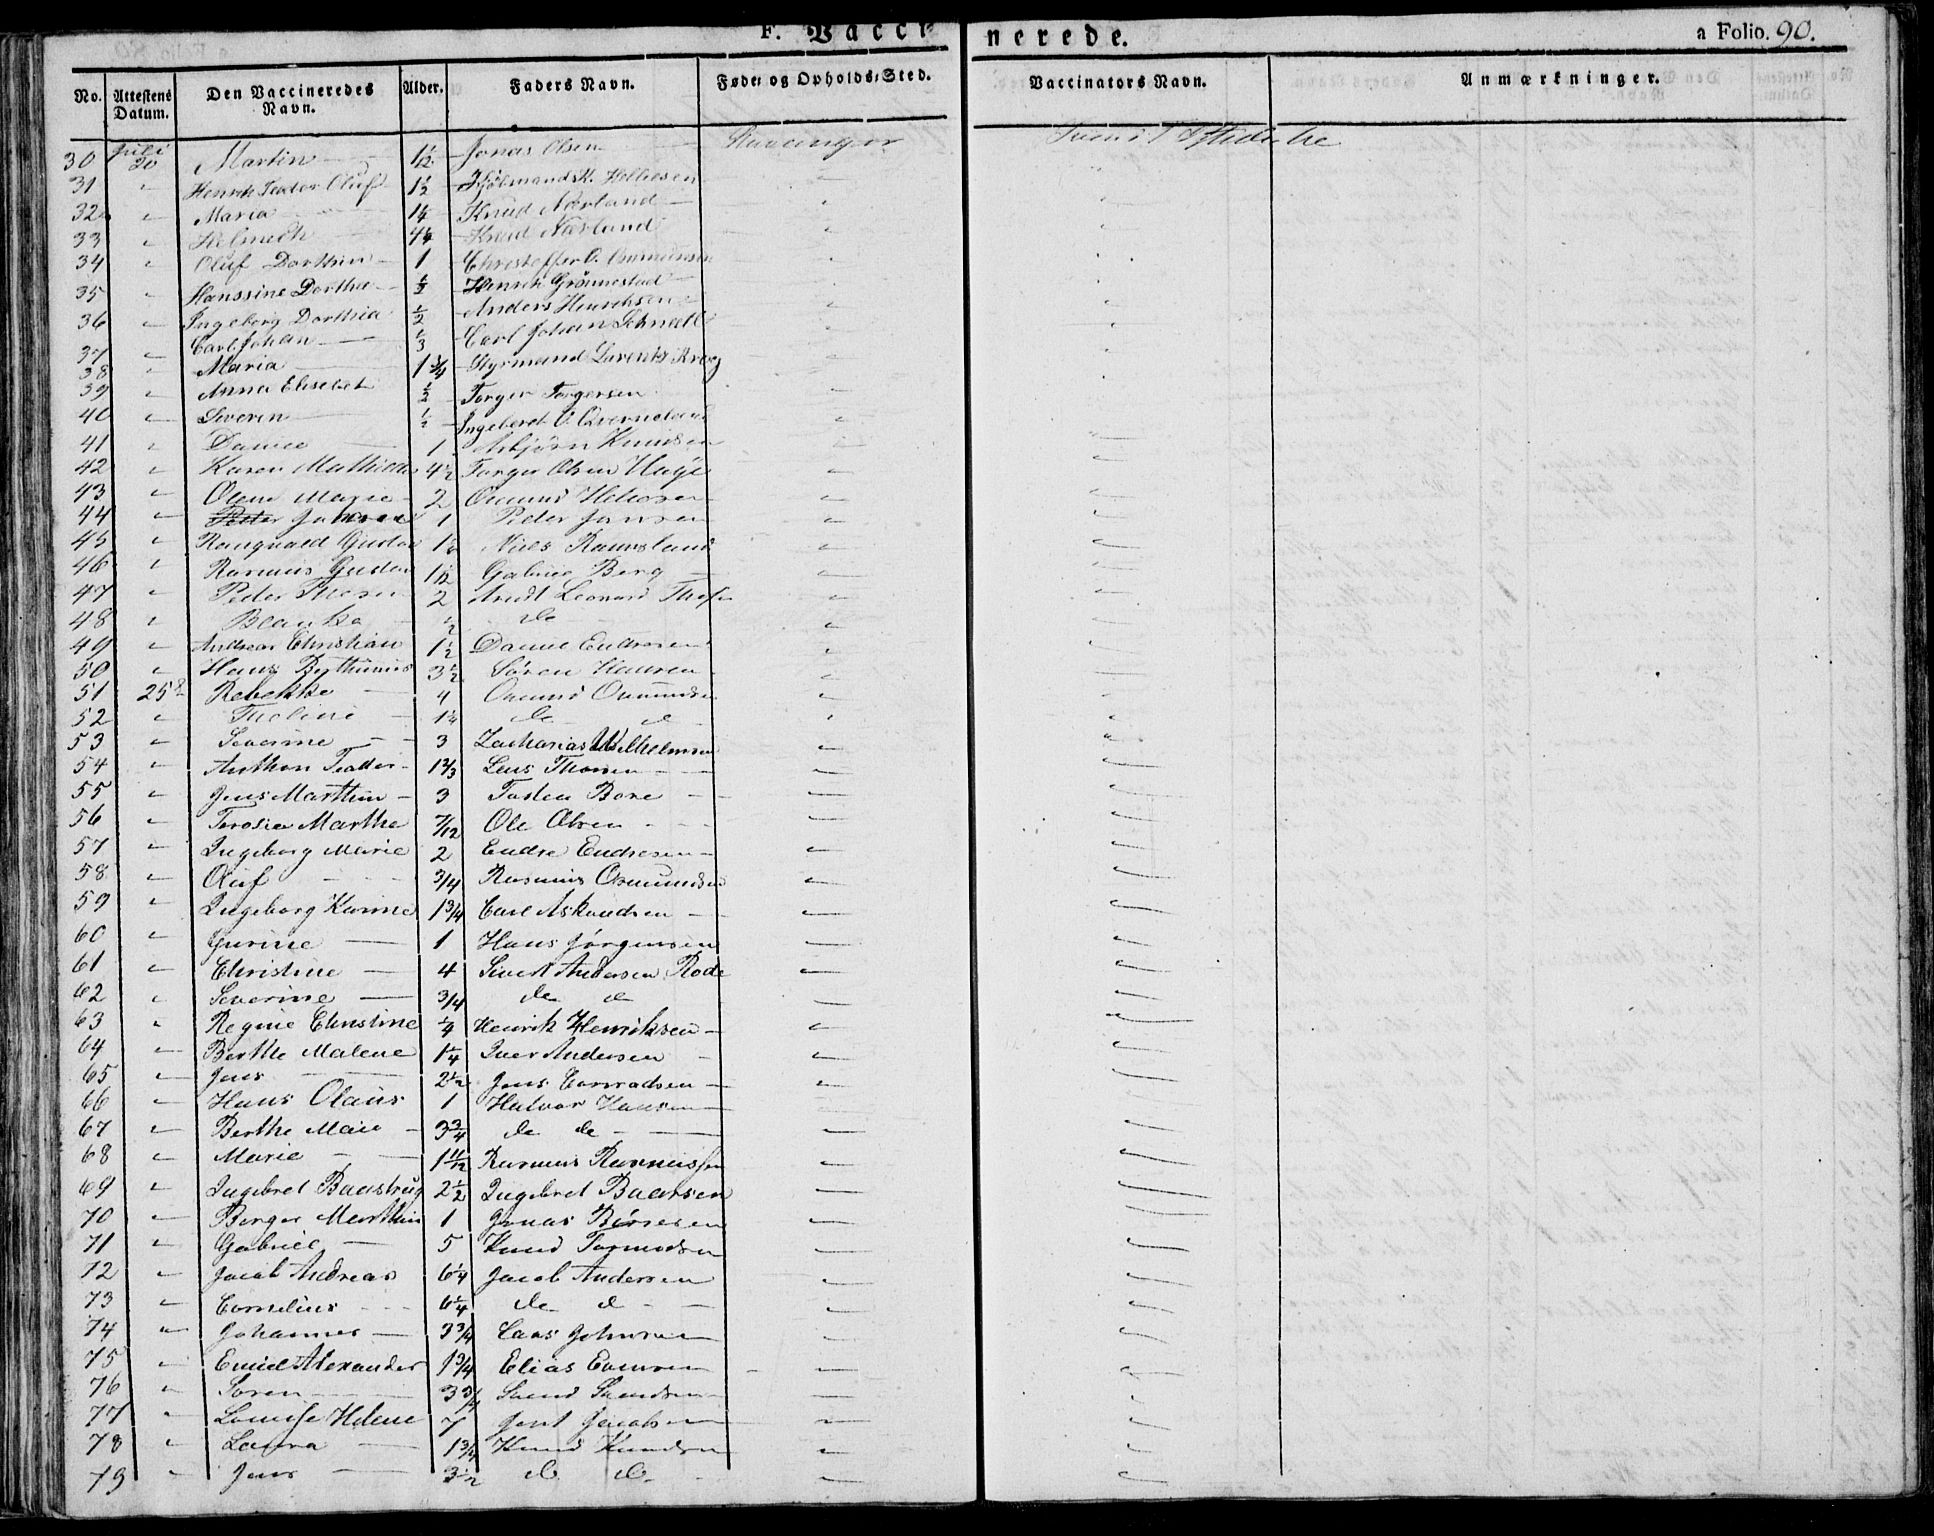 F. Vaccinerede. a Folio. 90.
No. Attestens Datum. Den Vaccineredes Navn. Alder. Faders Navn. Føde- og Opholds-Sted. Vaccinators Navn. Anmærkninger.
30 Juli 20 Martin 1 1/12 Jonas Olsen Stavanger
31 " Henrik Teodor Oluf 1 1/2
32 " Maria 1 1/4 Knud Nærland " "
33 " Helmich Knud Nærland " "
34 " Oluf Dorthin 1 Christoffer O. " "
35 " Hanssine Dorthea 1/3 Henrik Grönnestad
36 " Ingeborg Dorthia 1/2 Anders Henrichsen " "
37 " Carl Johan 1/3 Carl Johan " "
38 " Maria 1 3/4 Styrmand " "
39 " Anna Elisebet 1/2 Torger Torgersen " "
40 " Severin 1/2 Ingebret O. " "
41 " Daniel 1 Asbjörn Knudsen " "
42 " Karen Mathilde 4 1/2 Torger Olsen " "
43 " Olene Marie 2 " "
44 " 1 Peder Jansen " "
45 " Rangvald Gustav 1 1/2 Niels " "
46 " Rasmus Gustav 1 1/12 Gabriel Berg " "
47 " Peder 2 Arndt Leonard " "
48 " Blanka 1/2 do " "
49 " Andreas Christian 1 1/2 Daniel Endresen " "
50 " Hans 3 1/2 Sören Hansen " "
51 25 Rebekke 4 Osmund Osmundsen " "
52 " Thaline 1 1/4 do d " "
53 " Severine 3 Zacharias Wilhelmsen " "
54 " Anthon Teodor 1 2/3 " "
55 " Jens Marthin 3 Tosten Bore " "
56 " Terosia Marthe 7/12 Ole Olsen " "
57 " Ingeborg Marie 2 Endre Endresen " "
58 " Oluf 3/4 Rasmus Osmundsen " "
59 " Ingeborg Karine 1 3/4 Carl Askeudsen " "
60 " Gurine 1 Hans Jörgensen " "
61 " Christine 4 Sivert Andersen Rode " "
62 " Severine 3/4 do d " "
63 " Regine Christine 1/4 Henrik Henriksen " "
64 " Berthe Malene 1 1/4 Iver Andersen " "
65 " Jens 2 1/2 Jens Conradsen " "
66 " Hans Olaus 1 Halvor Hansen " "
67 " Berthe Marie 3 3/4 do do " "
68 " Marie 1 11/12 Rasmus Rasmussen " "
69 " Ingebret Baastrup 2 1/2 Ingebret Baarsen " "
70 " Berger Marthin 1 Jonas Börresen " "
71 " Gabriel 5 Knud Tormodsen " "
72 " Jacob Andreas 6 1/4 Jacob Andersen " "
73 " Cornelius 6 1/4 do d " "
74 " Johannes 3 3/4 Lars Johnsen " "
75 " Emiel Alexander 1 3/4 Elias " "
76 " Soren 3 3/4 " "
77 " Louise Helene 7 " "
78 " Laura 1 3/4 Knud Knudsen " "
79 " Jens 3 1/2 do do " "